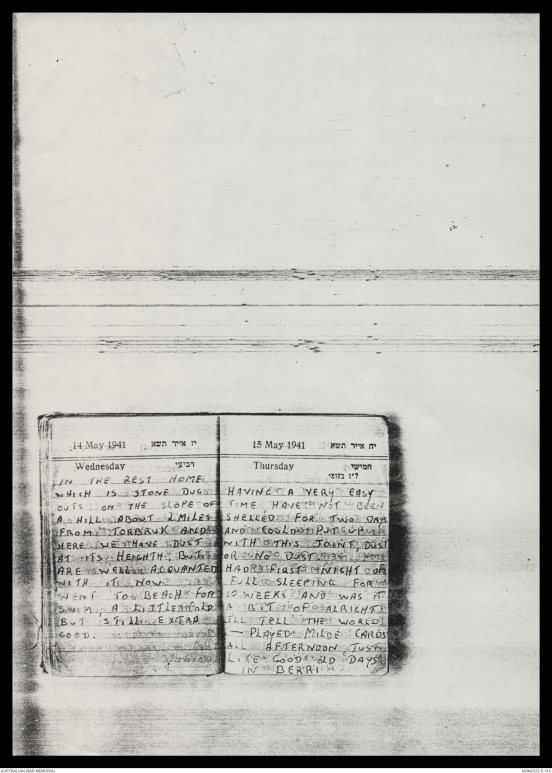 14 May 1941 יז אייר תשא
Wednesday רביעי
IN THE REST HOME
WHICH IS STONE DUG
OUTS ON THE SLOPE OF
A HILL ABOUT 2 MILES
FROM TORBRUK AND
HERE WE HAVE DUST
AT ITS HEIGHTH, BUT
ARE WELL ACQUANTED
WITH IT NOW
WENT TO BEACH FOR
SWIM, A LITTLE COLD
BUT STILL EXTRA
GOOD.
15 May 1941 יח אייר תשא
Thursday חמישי
ל״ג בעומר
HAVING A VERY EASY
TIME HAVE NOT BEEN
SHELLED FOR TWO DAY
AND COULD PUT UP
WITH THIS JOINT, DUST
OR NO DUST.
HAD FIRST NIGHT OF
FULL SLEEPING FOR
10 WEEKS AND WAS IT
A BIT OF ALRIGHT
I'LL TELL THE WORLD
— PLAYED CARDS
ALL AFTERNOON JUST
LIKE GOOD OLD DAYS
IN BERRI
AUSTRALIAN WAR MEMORIAL